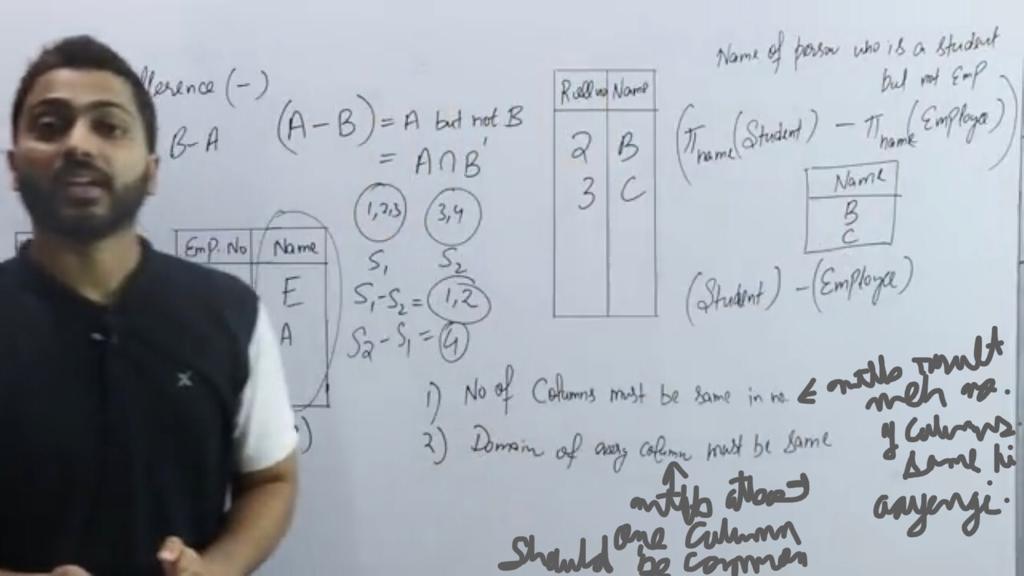 fference (-)
B-A
(A-B) = A but not B
= A∩B'
1,2,3
3,4
S1
S2
S1-S2 = 1,2
S2-S1 = 4
Emp. No Name
E
A
Rollno Name
2 B
3 C
Name of person who is a student
but not Emp
(πname(Student) - πname(Employee))
Name
B
C
(Student) - (Employee)
1) No of Columns must be same in no.
2) Domain of every column must be same
mtlb result
meh no.
of columns
same hi
aayengi.
mtlb atleast
one Column
Should be Common